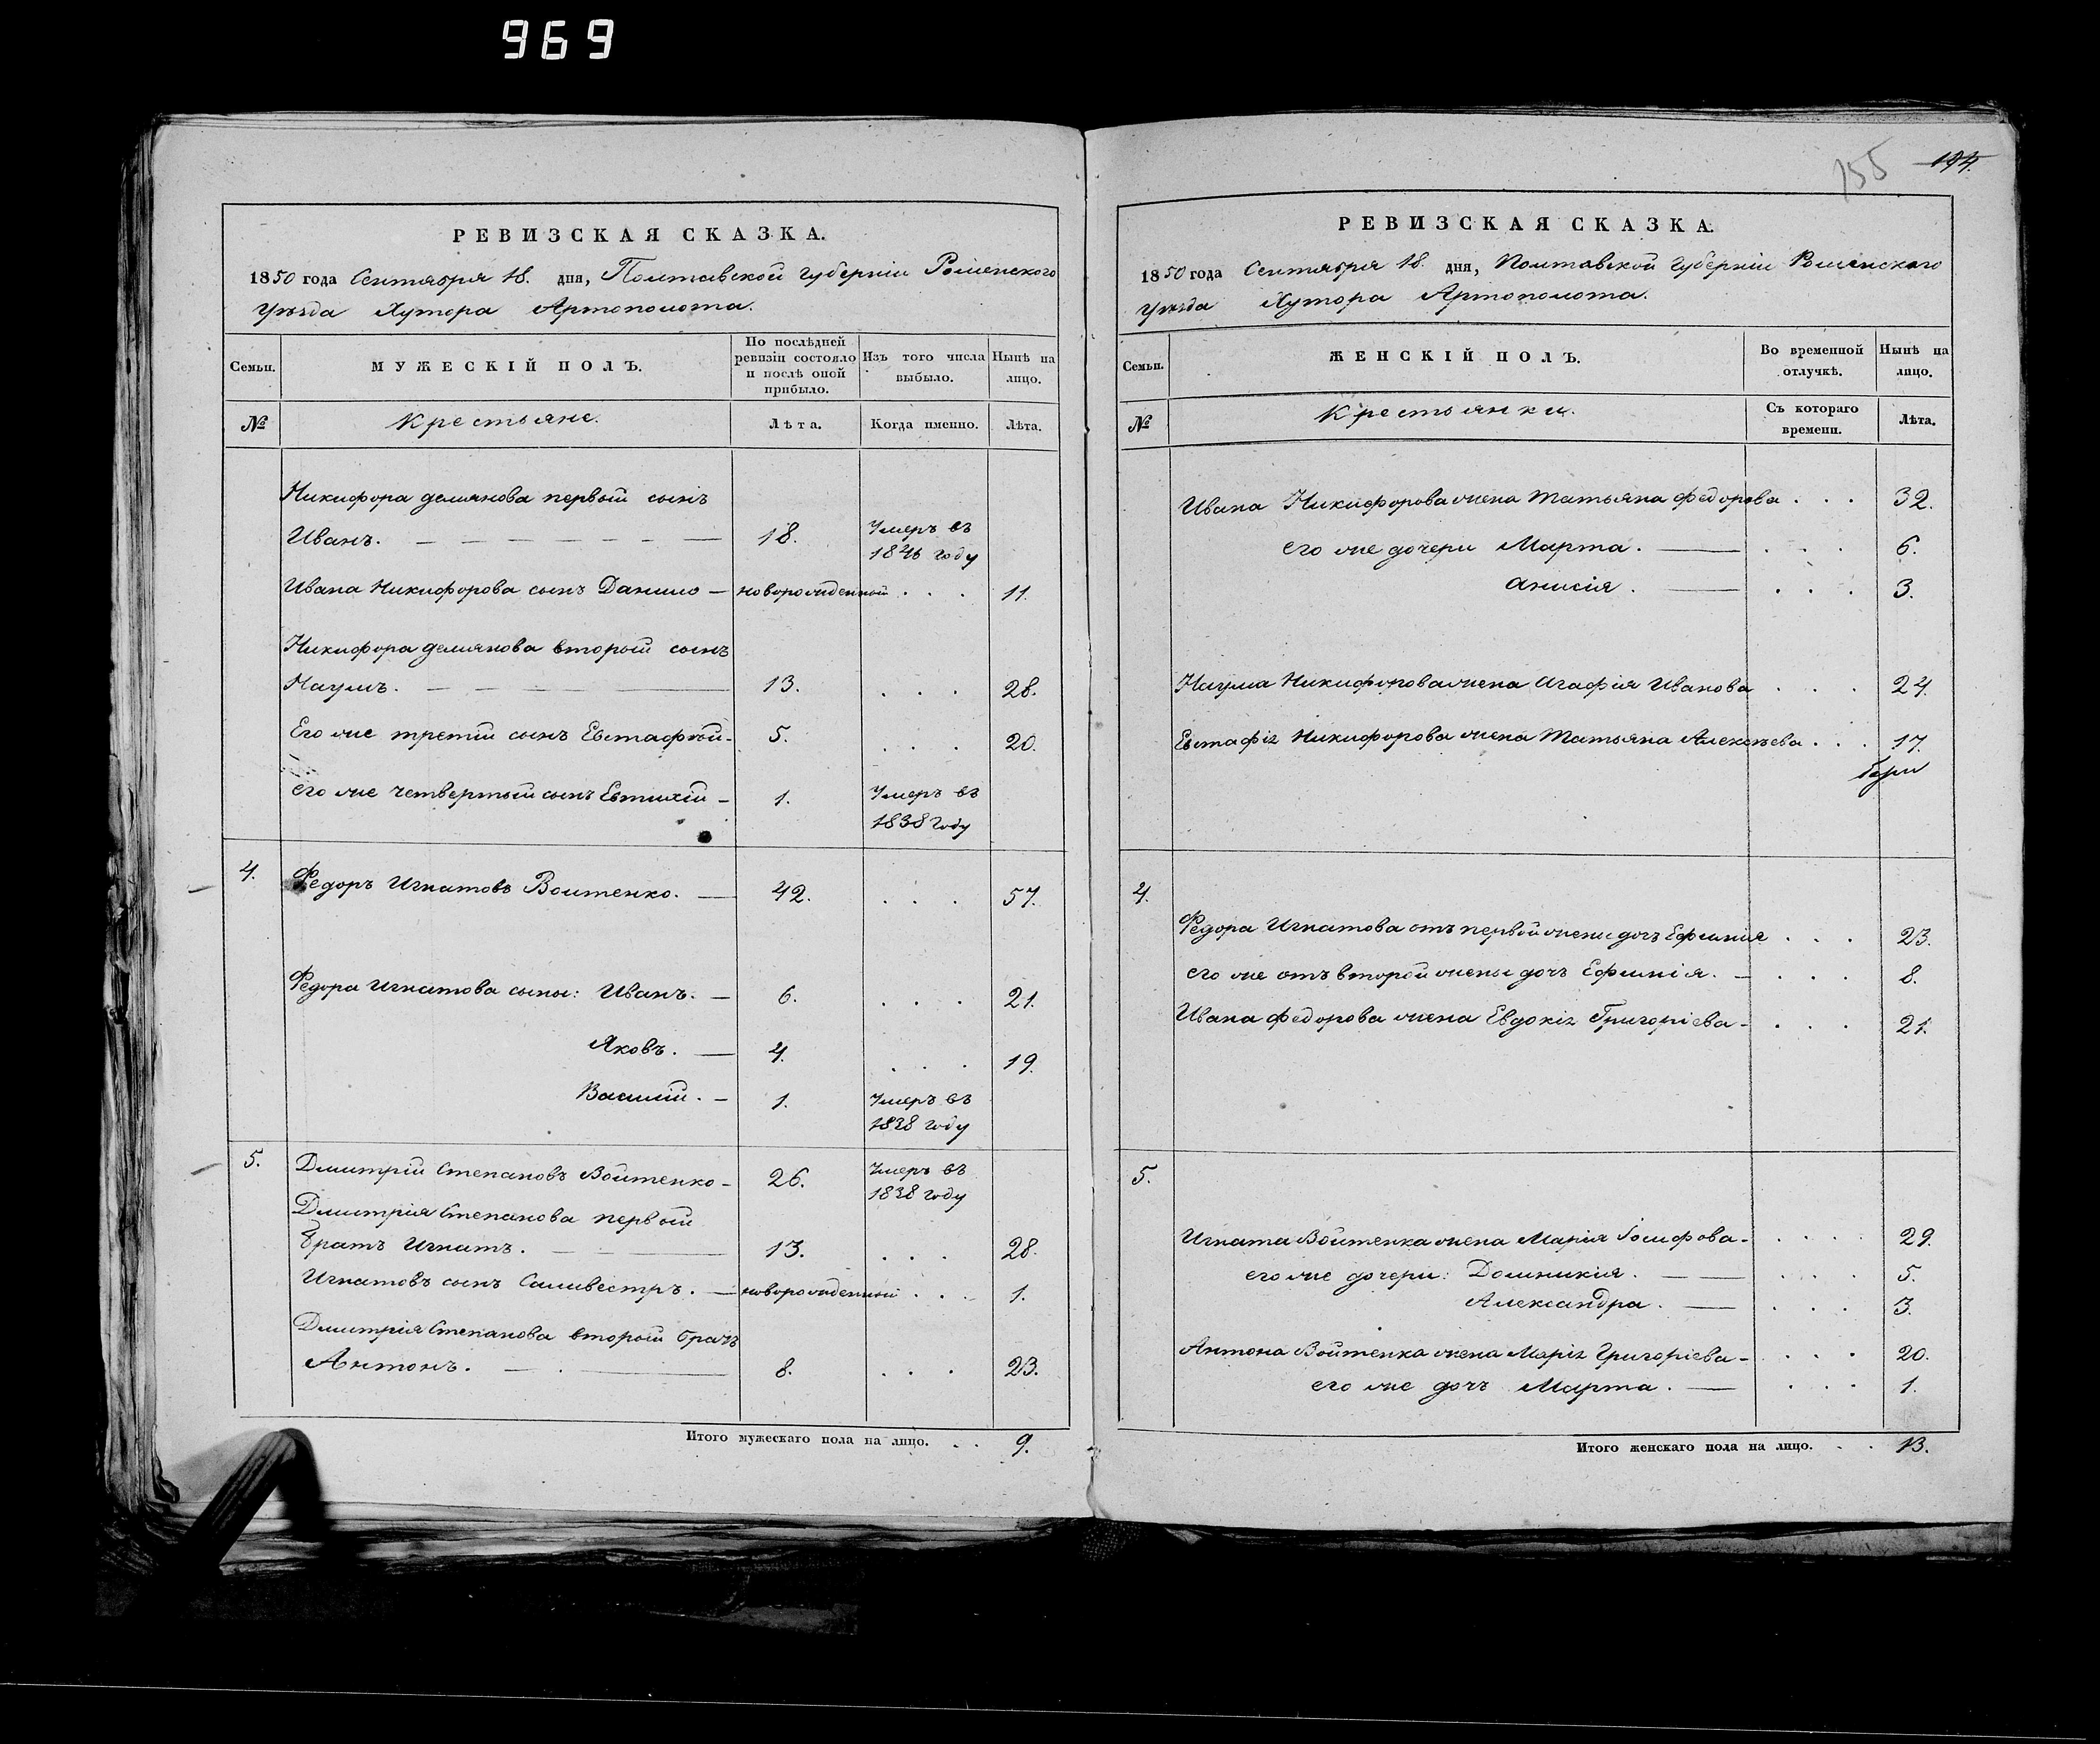 969
РЕВИЗСКАЯ СКАЗКА.
1850 года Сентября 18. дня, Полтавской Губерніи Роменского
Уѣзда Хутора Артополота.
Семьи.
МУЖЕСКІЙ ПОЛЪ.
По послѣдней
ревизіи состояло
и послѣ оной
прибыло.
Изъ того числа
выбыло.
Нынѣ на
лицо.
№
Крестьяне.
Лѣта.
Когда именно.
Лѣта.
Никифора Демянова первый сынъ
Иванъ. 18. Умеръ въ
1846 году
Ивана Никифорова сынъ Данило новорожденный . . . 11.
Никифора Демянова второй сынъ
Наумъ. 13. . . . 28.
Его же третій сынъ Евстафѣй 5. . . . 20.
его же четвертый сынъ Евтихій 1. Умеръ въ
1838 году
4. Федоръ Игнатовъ Воитенко. 42. . . . 57.
Федора Игнатова сыны: Иванъ. 6. . . . 21.
Яковъ. 4. . . . 19.
Василій. 1. Умеръ въ
1838 году
5. Дмитрій Степановъ Войтенко 26. Умеръ въ
1838 году
Дмитрія Степанова первый
братъ Игнатъ. 13. . . . 28.
Игнатовъ сынъ Саливестръ. новорожденный . . . 1.
Дмитрія Степанова второй братъ
Антонъ. 8. . . . 23.
Итого мужескаго пола на лицо. . . 9.
155 194.
РЕВИЗСКАЯ СКАЗКА.
1850 года Сентября 18. дня, Полтавской Губерніи Роменского
Уѣзда Хутора Артополота.
Семьи.
ЖЕНСКІЙ ПОЛЪ.
Во временной
отлучкѣ.
Нынѣ на
лицо.
№
Крестьянки.
Съ котораго
времени.
Лѣта.
Ивана Никифорова жена Татьяна Федорова . . . 32.
его же дочери Марта. . . . 6.
Анисія. . . . 3.
Наума Никифорова жена Агафія Иванова . . . 24.
Евстафія Никифорова жена Татьяна Алексѣева . . . 17.
4.
Федора Игнатова отъ первой жены дочь Ефимія . . . 23.
его же отъ второй жены дочь Ефимія. . . . 8.
Ивана Федорова жена Евдокія Григоріева . . . 21.
5.
Игната Войтенка жена Марія Іосифова . . . 29.
его же дочери: Домникія. . . . 5.
Александра. . . . 3.
Антона Войтенка жена Марія Григоріева . . . 20.
его же дочь Марта. . . . 1.
Итого женскаго пола на лицо. . . 13.